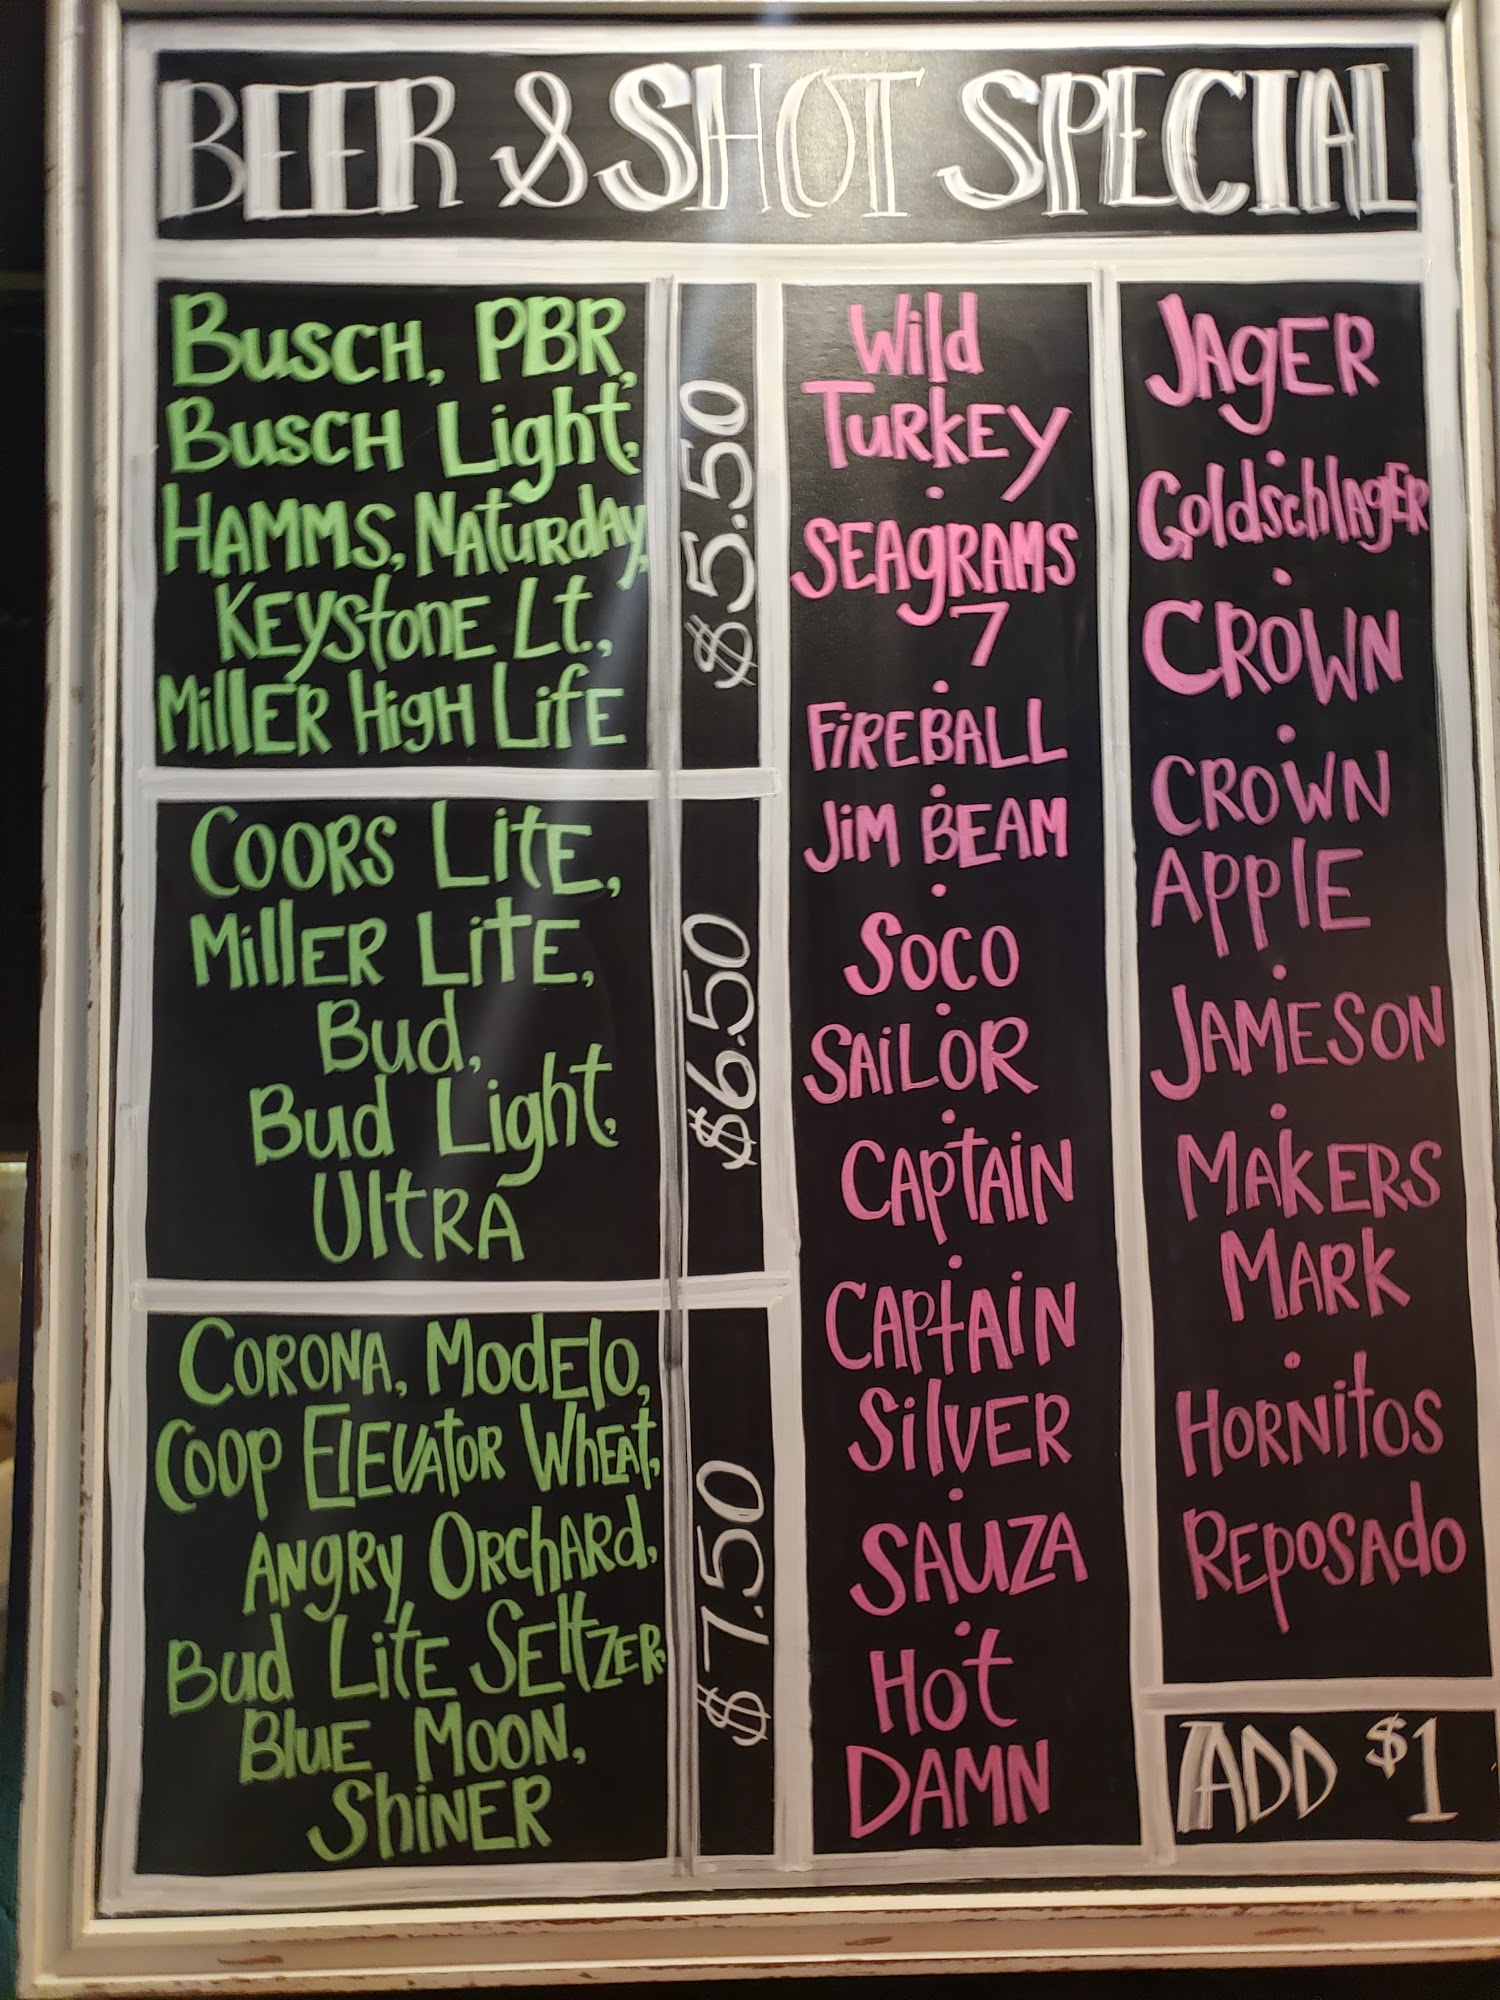 BEER & SHOT SPECIAL
BUSCH, PBR,
BUSCH Light,
HAMMS, NATURDAY,
KEYSTONE Lt.,
MillER HigH LifE
$5.50
COORS LitE,
MillER LitE,
Bud,
Bud Light,
UltRA
$6.50
CORONA, ModElo,
COOP ElEVAtoR WhEAt,
ANgRy ORchARd,
Bud LitE SEltzER,
BluE MOON,
ShiNER
$7.50
Wild
TURKEY
SEAgRAMS
7
FiREBALL
JiM BEAM
SOCO
SAiLOR
CAptAiN
CAptAiN
SilVER
SAUZA
Hot
DAMN
JAgER
GoldschlAgER
CROWN
CROWN
APPlE
JAMESON
MAKERS
MARK
HORNitos
REposAdo
ADD $1